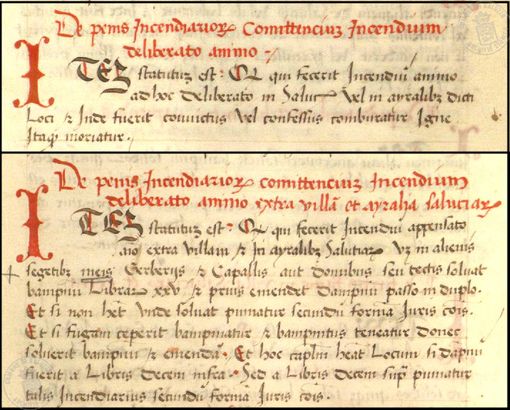 De penis Incendiarioꝝ Comittenciuꝫ Incendium
deliberato animo·
ITEꝫ statutuꝫ est: Qꝫ qui fecerit Incendiũ animo
ad hoc deliberato in Saluc̃ vel in ayralibꝫ dicti
Loci & Inde fuerit convictus vel confessus comburatur Igne
Itaqꝫ moriatur.
De penis Incendiarioꝝ comittenciuꝫ Incendium
deliberato animo extra villã et ayralia saluciaꝝ
ITEꝫ statutuꝫ est: Qꝫ qui fecerit Incendiũ appensato
aĩo extra villam & In ayralibꝫ Salutiaꝝ vꝫ in alienis
segetibꝫ meis Gerberijs & Capallis aut domibus seu tectis soluat
bampnũ Librar̃ XXV & prius emendet dampnũ passo in duplo·
Et si non het̃ vnde soluat puniatur secundũ forma Iuris cõis·
Et si fugam ceperit bampniatur & bampnitus teneatur donec
soluerit bampnũ & emendã· Et hoc caplm̃ heãt Locum si dapnũ
fuerit a Libris decem infra· Sed a Libris decem supͣ puniatur
talis Incendiarius secundũ formã Iuris cõis·